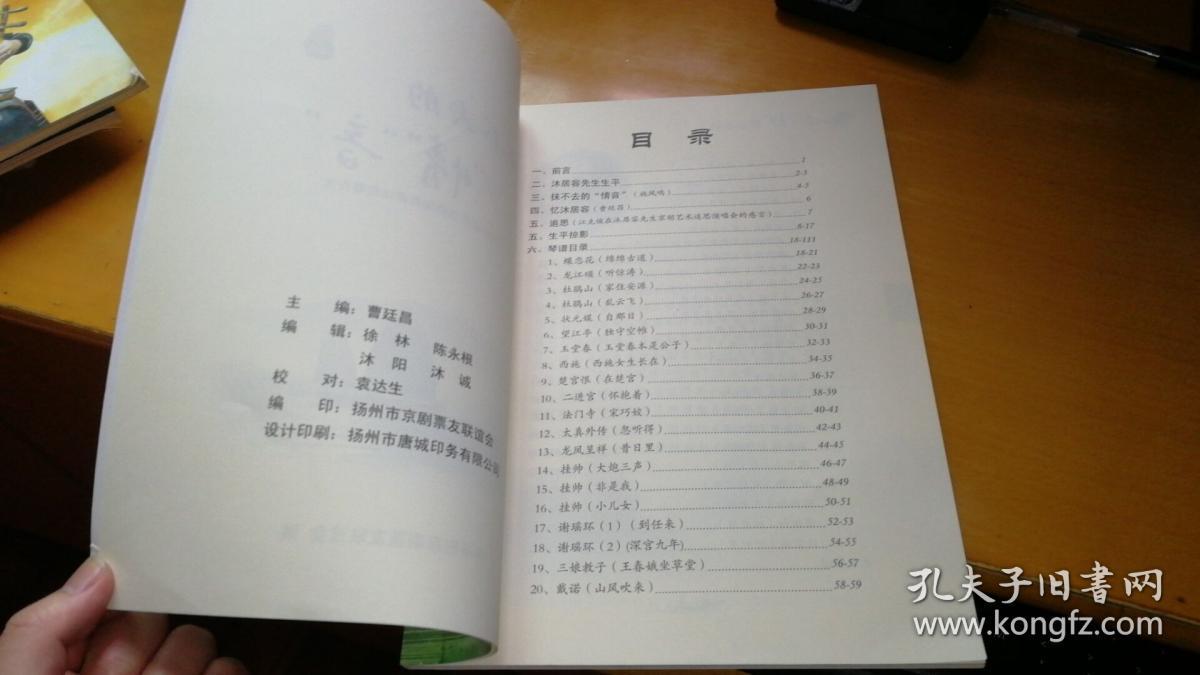 主　编：曹廷昌
编　辑：徐　林　陈永根
沐　阳　沐　诚
校　对：袁达生
编　印：扬州市京剧票友联谊会
设计印刷：扬州市唐城印务有限公司
目　录
一、前言 1
二、沐居容先生生平 2-3
三、抹不去的“情音” 4-5
四、忆沐居容（曹廷昌） 6
五、追思（江克俭在沐居容先生京胡艺术追思演唱会的感言） 7
五、生平掠影 8-17
六、琴谱目录 18-111
1、蝶恋花（绵绵古道） 18-21
2、龙江颂（听惊涛） 22-23
3、杜鹃山（家住安源） 24-25
4、杜鹃山（乱云飞） 26-27
5、状元媒（自那日） 28-29
6、望江亭（独守空帷） 30-31
7、玉堂春（玉堂春本是公子） 32-33
8、西施（西施女生长在） 34-35
9、楚宫恨（在楚宫） 36-37
10、二进宫（怀抱着） 38-39
11、法门寺（宋巧姣） 40-41
12、太真外传（忽听得） 42-43
13、龙凤呈祥（昔日里） 44-45
14、挂帅（大炮三声） 46-47
15、挂帅（非是我） 48-49
16、挂帅（小儿女） 50-51
17、谢瑶环（1）（到任来） 52-53
18、谢瑶环（2）(深宫九年) 54-55
19、三娘教子（王春娥坐草堂） 56-57
20、戴诺（山风吹来） 58-59
孔夫子旧书网
www.kongfz.com